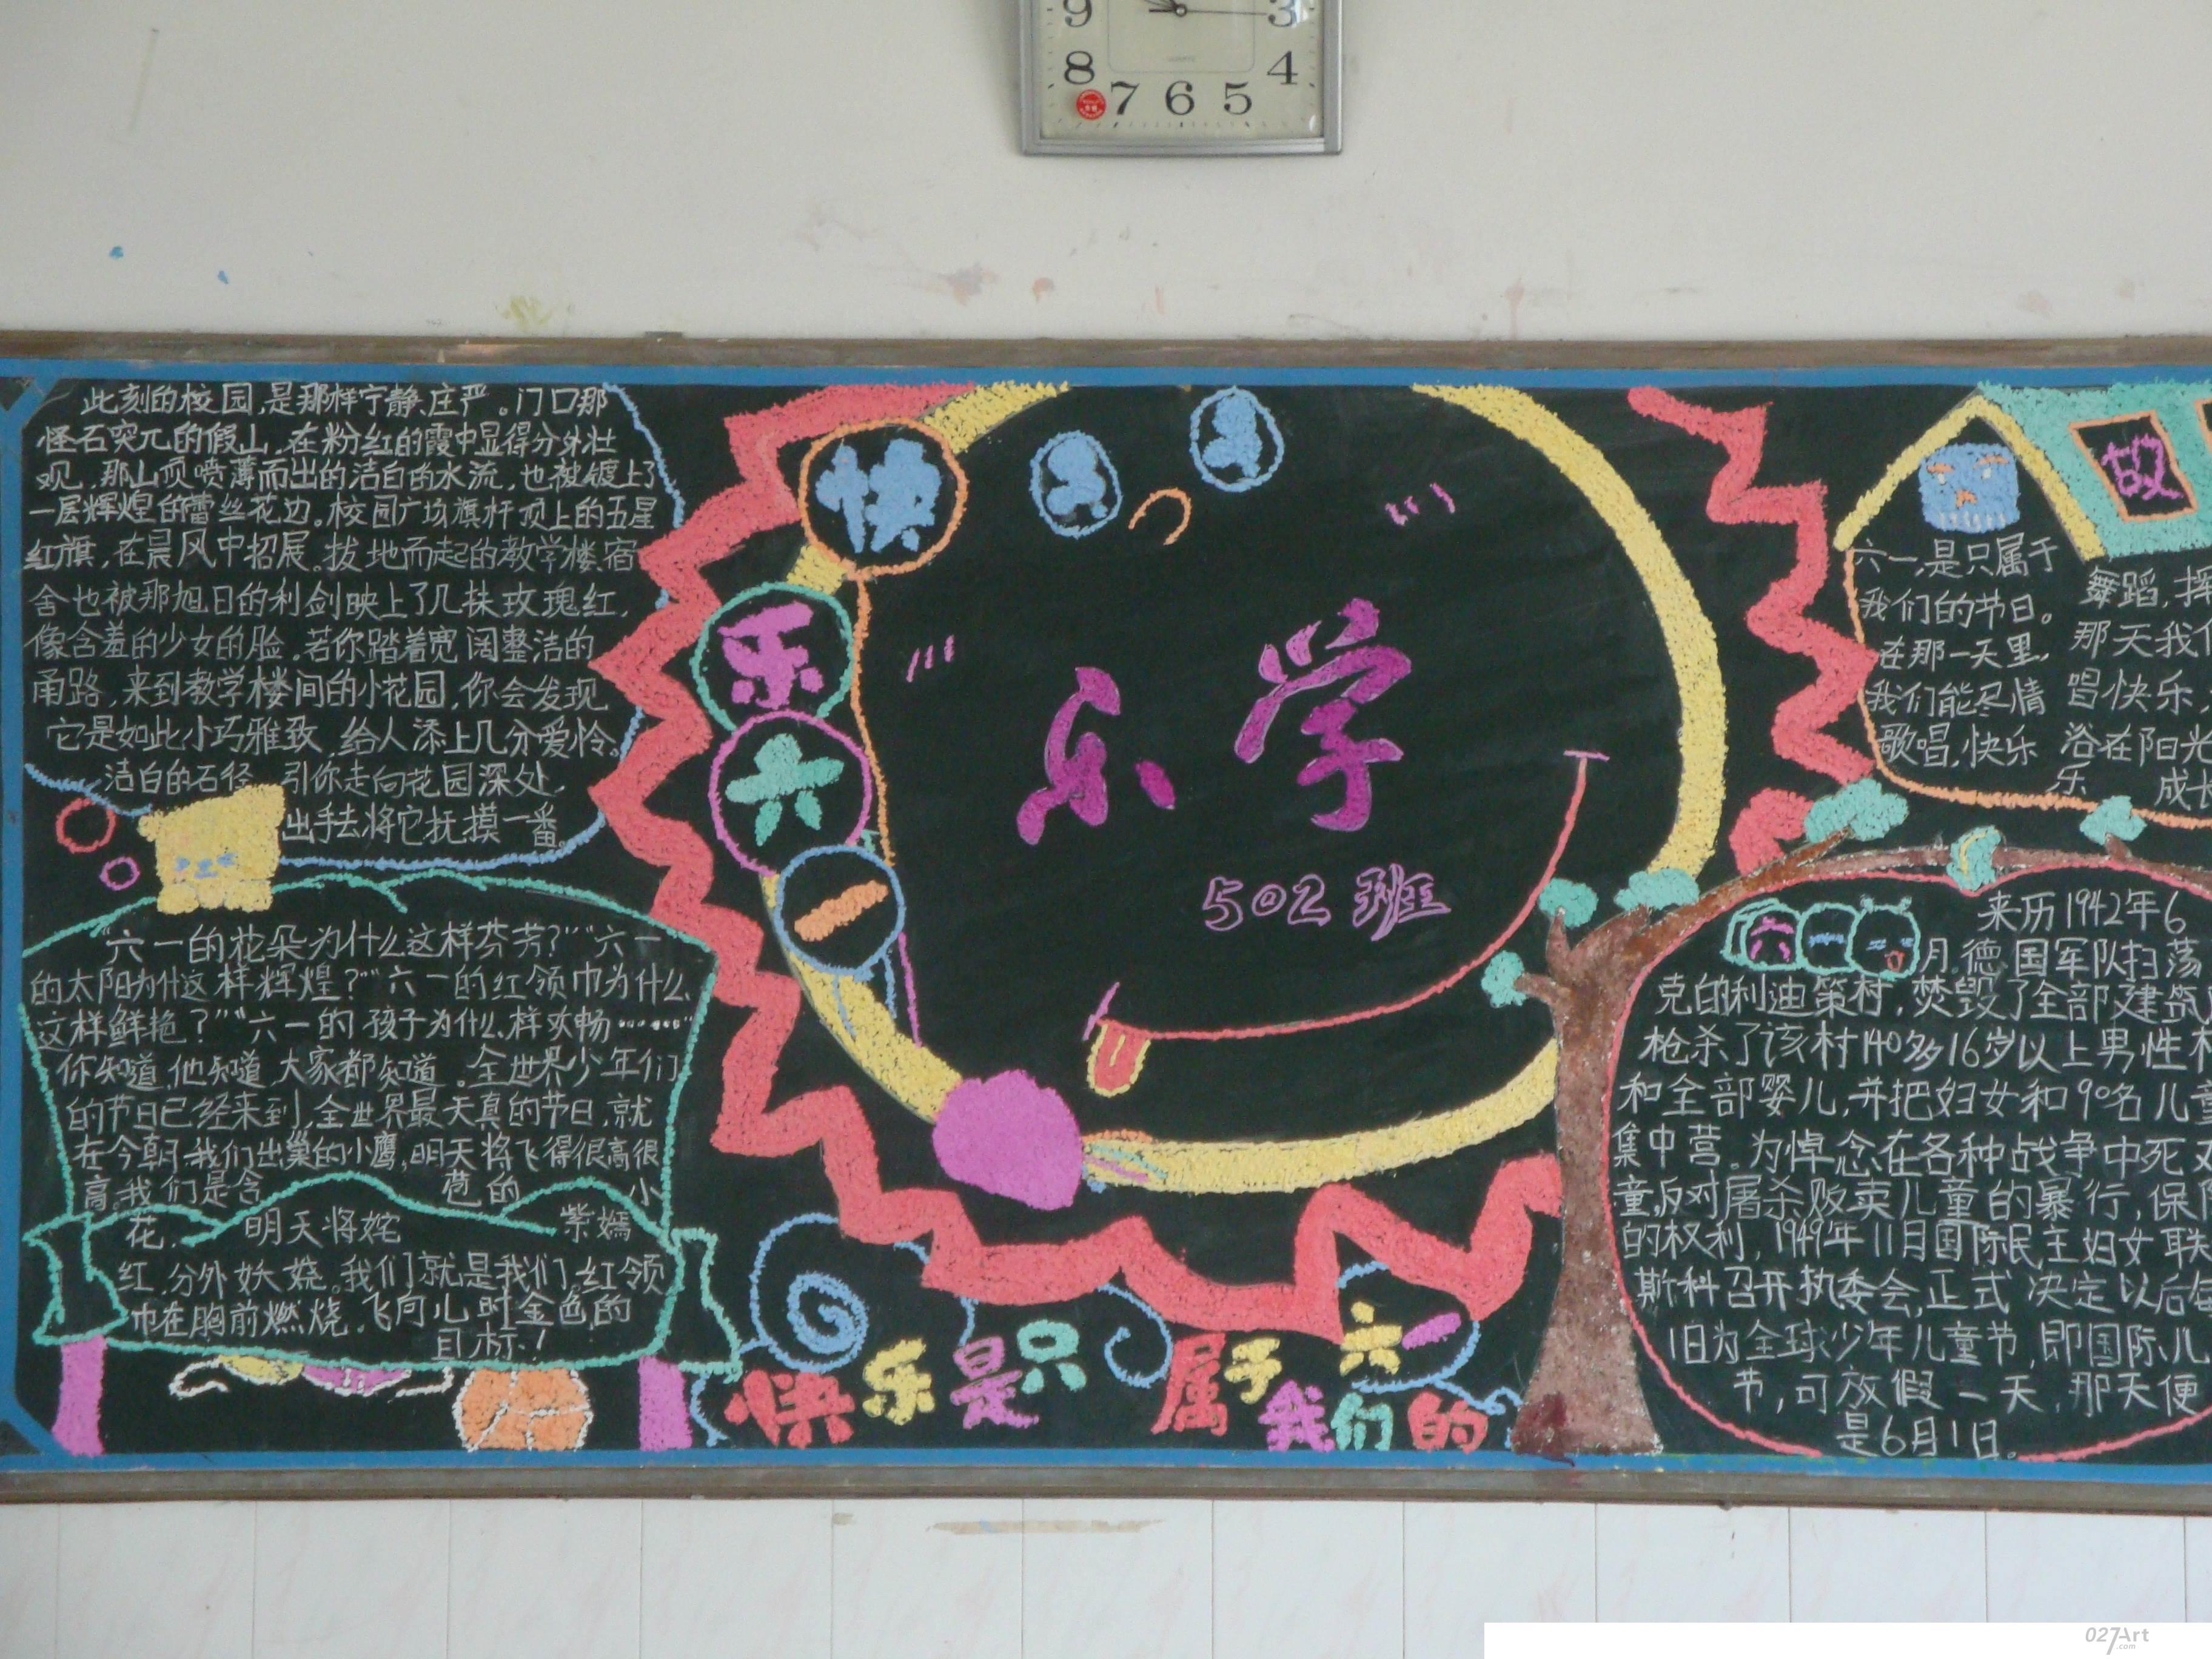 9
3
8
4
7 6 5
此刻的校园,是那样宁静、庄严。门口那
怪石突兀的假山,在粉红的霞中显得分外壮
观,那山顶喷薄而出的洁白的水流,也被镀上了
一层辉煌的蕾丝花边。校园广场旗杆顶上的五星
红旗,在晨风中招展。拔地而起的教学楼、宿
舍也被那旭日的利剑映上了几抹玫瑰红,
像含羞的少女的脸。若你踏着宽阔整洁的
甬路,来到教学楼间的小花园,你会发现
它是如此小巧雅致,给人添上几分爱怜。
洁白的石径,引你走向花园深处,
出手去将它抚摸一番。
"六一的花朵为什么这样芬芳?""六一
的太阳为什这样辉煌?""六一的红领巾为什么
这样鲜艳?""六一的孩子为什么样欢畅……"
你知道,他知道,大家都知道。全世界少年们
的节日已经来到,全世界最天真的节日,就
在今朝。我们出巢的小鹰,明天将飞得很高很
高。我们是含苞的小
花,明天将姹紫嫣
红,分外妖娆。我们就是我们。红领
巾在胸前燃烧,飞向儿时金色的
目标!
快
乐
六
一
乐学
502班
快乐是只属于我们的六一
故
六一,是只属于
我们的节日。
在那一天里,
我们能尽情
歌唱,快乐
舞蹈,挥
那天我们
唱快乐,
浴在阳光
乐成长
六一
来历1942年6
月,德国军队扫荡
克的利迪策村,焚毁了全部建筑
枪杀了该村140多16岁以上男性村
和全部婴儿,并把妇女和90名儿童
集中营。为悼念在各种战争中死
童,反对屠杀贩卖儿童的暴行,保
的权利,1949年11月国际民主妇女联
斯科召开执委会,正式决定以后每
1日为全球少年儿童节,即国际儿
节,可放假一天,那天便
是6月1日。
027Art
.com